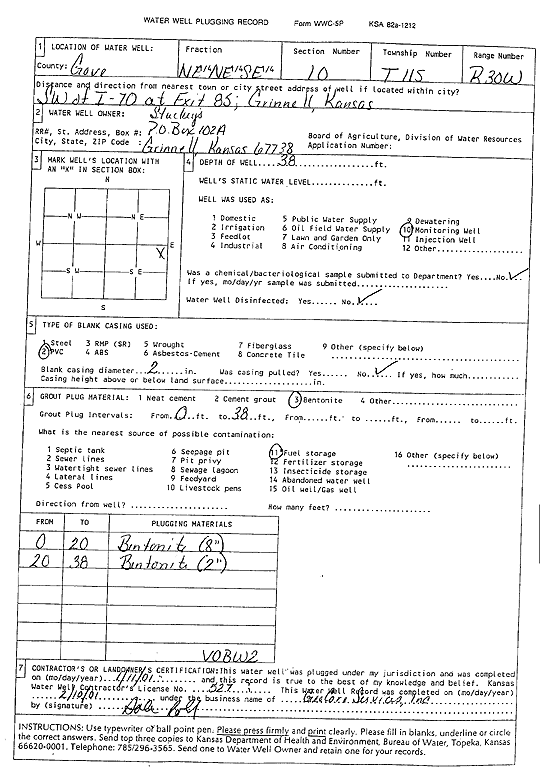 WATER WELL PLUGGING RECORD Form WWC-5P KSA 82a-1212
1 LOCATION OF WATER WELL: Fraction Section Number Township Number Range Number
County: Gove NE¼NE¼SE¼ 10 T 11S R30W
Distance and direction from nearest town or city street address of well if located within city?
SW of I-70 at Exit 85; Grinnell, Kansas
2 WATER WELL OWNER: Stuckeys
RR#, St. Address, Box #: P.O. Box 102A Board of Agriculture, Division of Water Resources
City, State, ZIP Code : Grinnell, Kansas 67738 Application Number:
3 MARK WELL'S LOCATION WITH AN "X" IN SECTION BOX:
N
N W N E
W X E
S W S E
S
4 DEPTH OF WELL....38..........ft.
WELL'S STATIC WATER LEVEL.............ft.
WELL WAS USED AS:
1 Domestic 5 Public Water Supply 9 Dewatering
2 Irrigation 6 Oil Field Water Supply 10 Monitoring Well
3 Feedlot 7 Lawn and Garden Only 11 Injection Well
4 Industrial 8 Air Conditioning 12 Other..........
Was a chemical/bacteriological sample submitted to Department? Yes....No.✓..
If yes, mo/day/yr sample was submitted................
Water Well Disinfected: Yes...... No.✓
5 TYPE OF BLANK CASING USED:
1 Steel 3 RMP (SR) 5 Wrought 7 Fiberglass 9 Other (specify below)
2 PVC 4 ABS 6 Asbestos-Cement 8 Concrete Tile ....................
Blank casing diameter...2.....in. Was casing pulled? Yes..... No.✓... If yes, how much..........
Casing height above or below land surface................in.
6 GROUT PLUG MATERIAL: 1 Neat cement 2 Cement grout 3 Bentonite 4 Other..........
Grout Plug Intervals: From.0..ft. to.38..ft., From......ft. to ......ft., From...... to......ft.
What is the nearest source of possible contamination:
1 Septic tank 6 Seepage pit 11 Fuel storage 16 Other (specify below)
2 Sewer lines 7 Pit privy 12 Fertilizer storage ....................
3 Watertight sewer lines 8 Sewage lagoon 13 Insecticide storage
4 Lateral lines 9 Feedyard 14 Abandoned water well
5 Cess Pool 10 Livestock pens 15 Oil well/Gas well
Direction from well? .................... How many feet? ....................
FROM TO PLUGGING MATERIALS
0 20 Bentonite (8")
20 38 Bentonite (2")
VOBW2
7 CONTRACTOR'S OR LANDOWNER'S CERTIFICATION: This water well was plugged under my jurisdiction and was completed
on (mo/day/year)....1/11/01..... and this record is true to the best of my knowledge and belief. Kansas
Water Well Contractor's License No. ...527..... This Water Well Record was completed on (mo/day/year)
.....2/10/01....., under the business name of
by (signature)
INSTRUCTIONS: Use typewriter of ball point pen. Please press firmly and print clearly. Please fill in blanks, underline or circle
the correct answers. Send top three copies to Kansas Department of Health and Environment, Bureau of Water, Topeka, Kansas
66620-0001. Telephone: 785/296-3565. Send one to Water Well Owner and retain one for your records.